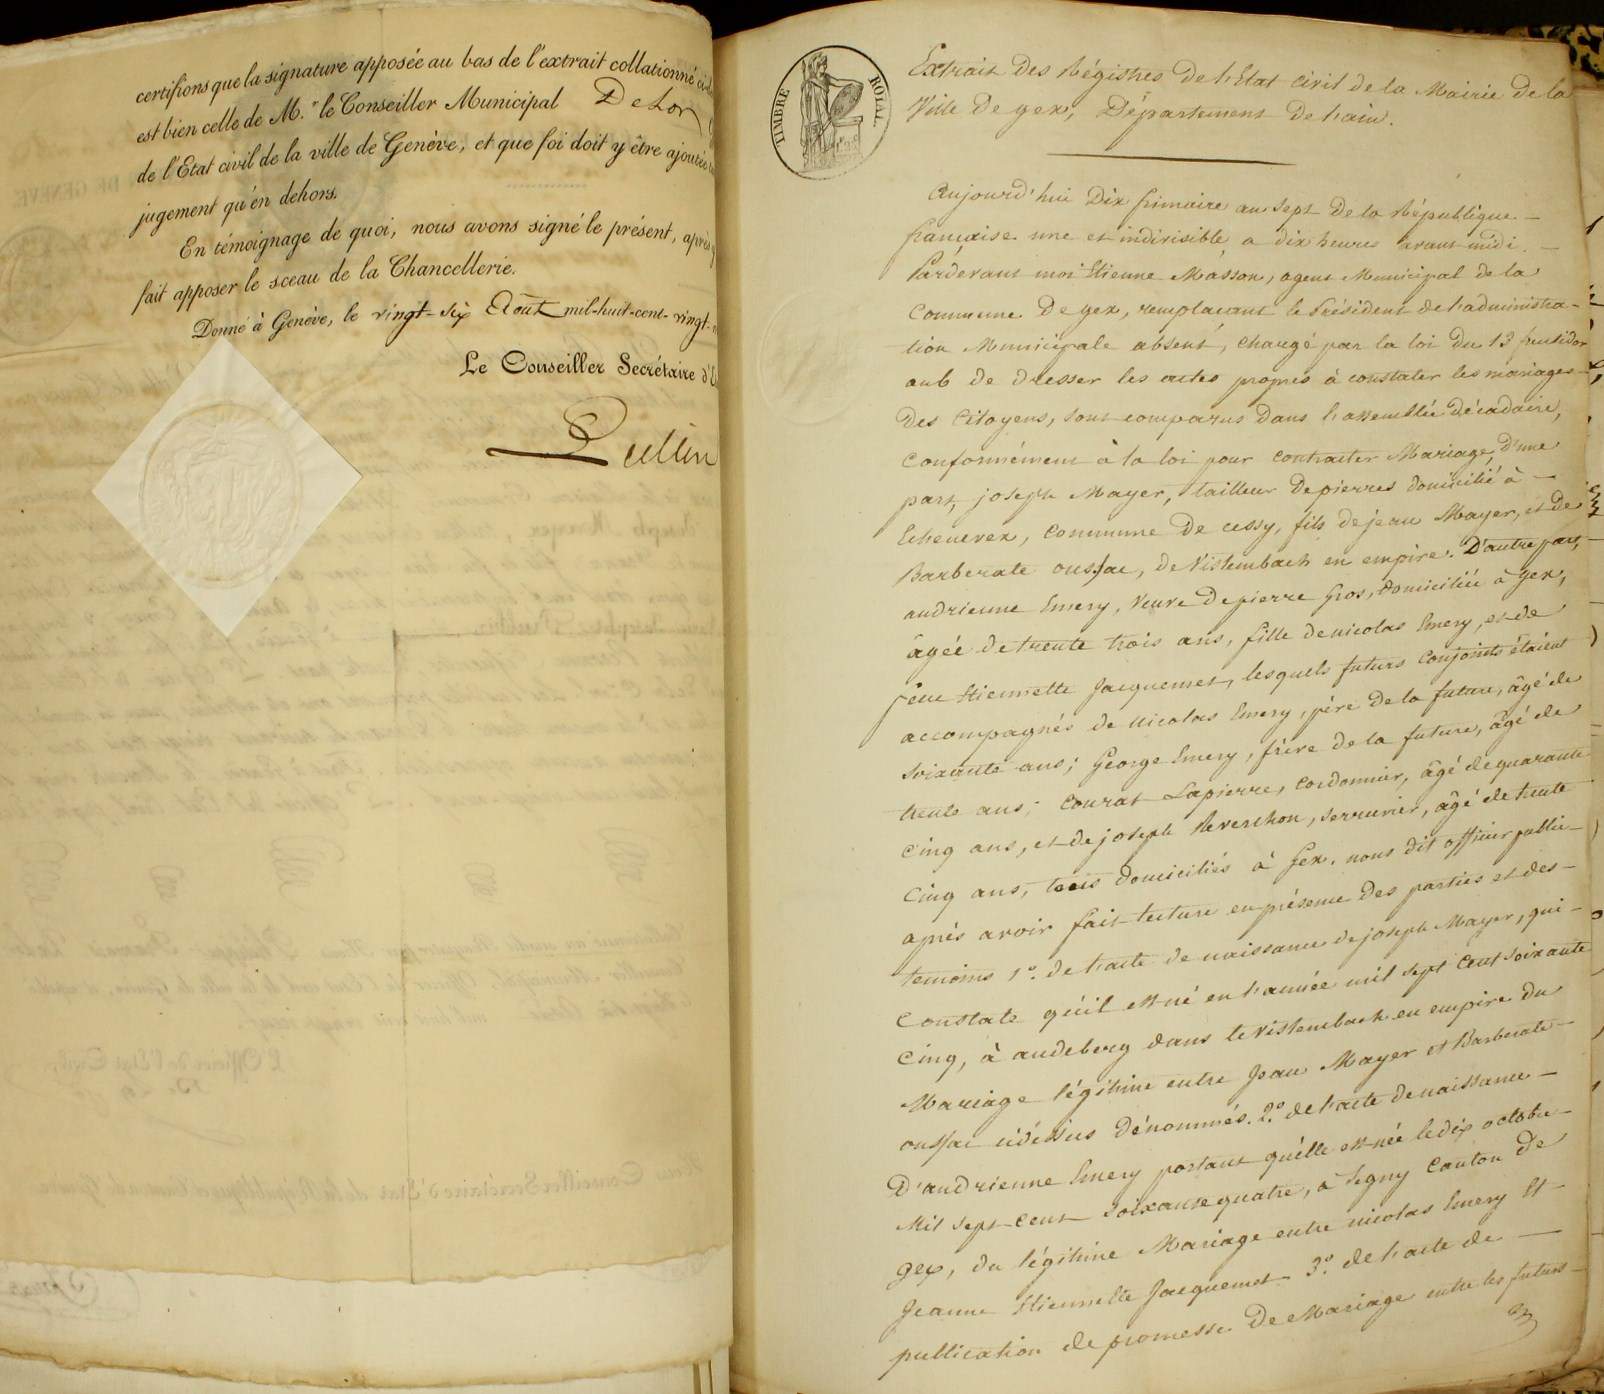 certifions que la signature apposée au bas de l'extrait collationné
est bien celle de M.r le Conseiller Municipal DeLor
de l'Etat civil de la ville de Genève, et que foi doit y être ajoutée
jugement qu'en dehors.
En témoignage de quoi, nous avons signé le présent, après
fait apposer le sceau de la Chancellerie.
Donné à Genève, le vingt-six Août mil-huit-cent-vingt-
Le Conseiller Secrétaire d'E
Pullin
TIMBRE ROYAL.
Extrait des Régistres de l'Etat civil de la Mairie de la
Ville de gex, Département de l'ain.
Aujourd'hui Dix frimaire an sept de la République
française une et indivisible a dix heures avant midi.
Pardevant moi Etienne Masson, agent Municipal de la
Commune De gex, remplacant le Président de l'administra-
tion Municipale absent, chargé par la loi du 13 fructidor
an 6 de dresser les actes propres à constater les mariages
des Citoyens, sont comparus dans l'assemblée décadaire,
Conformément à la loi pour contracter Mariage, d'une
part, joseph Mayer, tailleur de pierres domicilié à
Echenevex, commune de cessy, fils de jean Mayer, et de
Barberate oussac, de Vistembach en empire. D'autre part,
andrienne Emery, Veuve de pierre Gros, domiciliée à gex,
âgée de trente trois ans, fille de nicolas Emery, et de
feue Etiennette Jacquemet, lesquels futurs conjoints étaient
accompagnés de nicolas Emery, père de la future, âgé de
soixante ans; George Emery, frère de la future, âgé de
trente ans; Conrat Lapierre, cordonnier, âgé de quarante
cinq ans, et de joseph Reverchon, serrurier, âgé de trente
cinq ans, tous domiciliés à Gex. nous dit officier public
après avoir fait lecture en présence des parties et des
temoins 1o. de l'acte de naissance de joseph Mayer, qui
constate qu'il est né en l'année mil sept cent soixante
cinq, à andeberg dans le Vistembach en empire du
Mariage légitime entre Jean Mayer et Barberate
oussac cidessus dénommés. 2o. de l'acte de naissance
D'andrienne Emery portant qu'elle est née le dix octobre
Mil sept cent soixante quatre, à segny Canton de
gex, du légitime Mariage entre nicolas Emery Et
Jeanne Etiennette Jacquemet 3o. de l'acte de
publication de promesse De Mariage entre les futurs